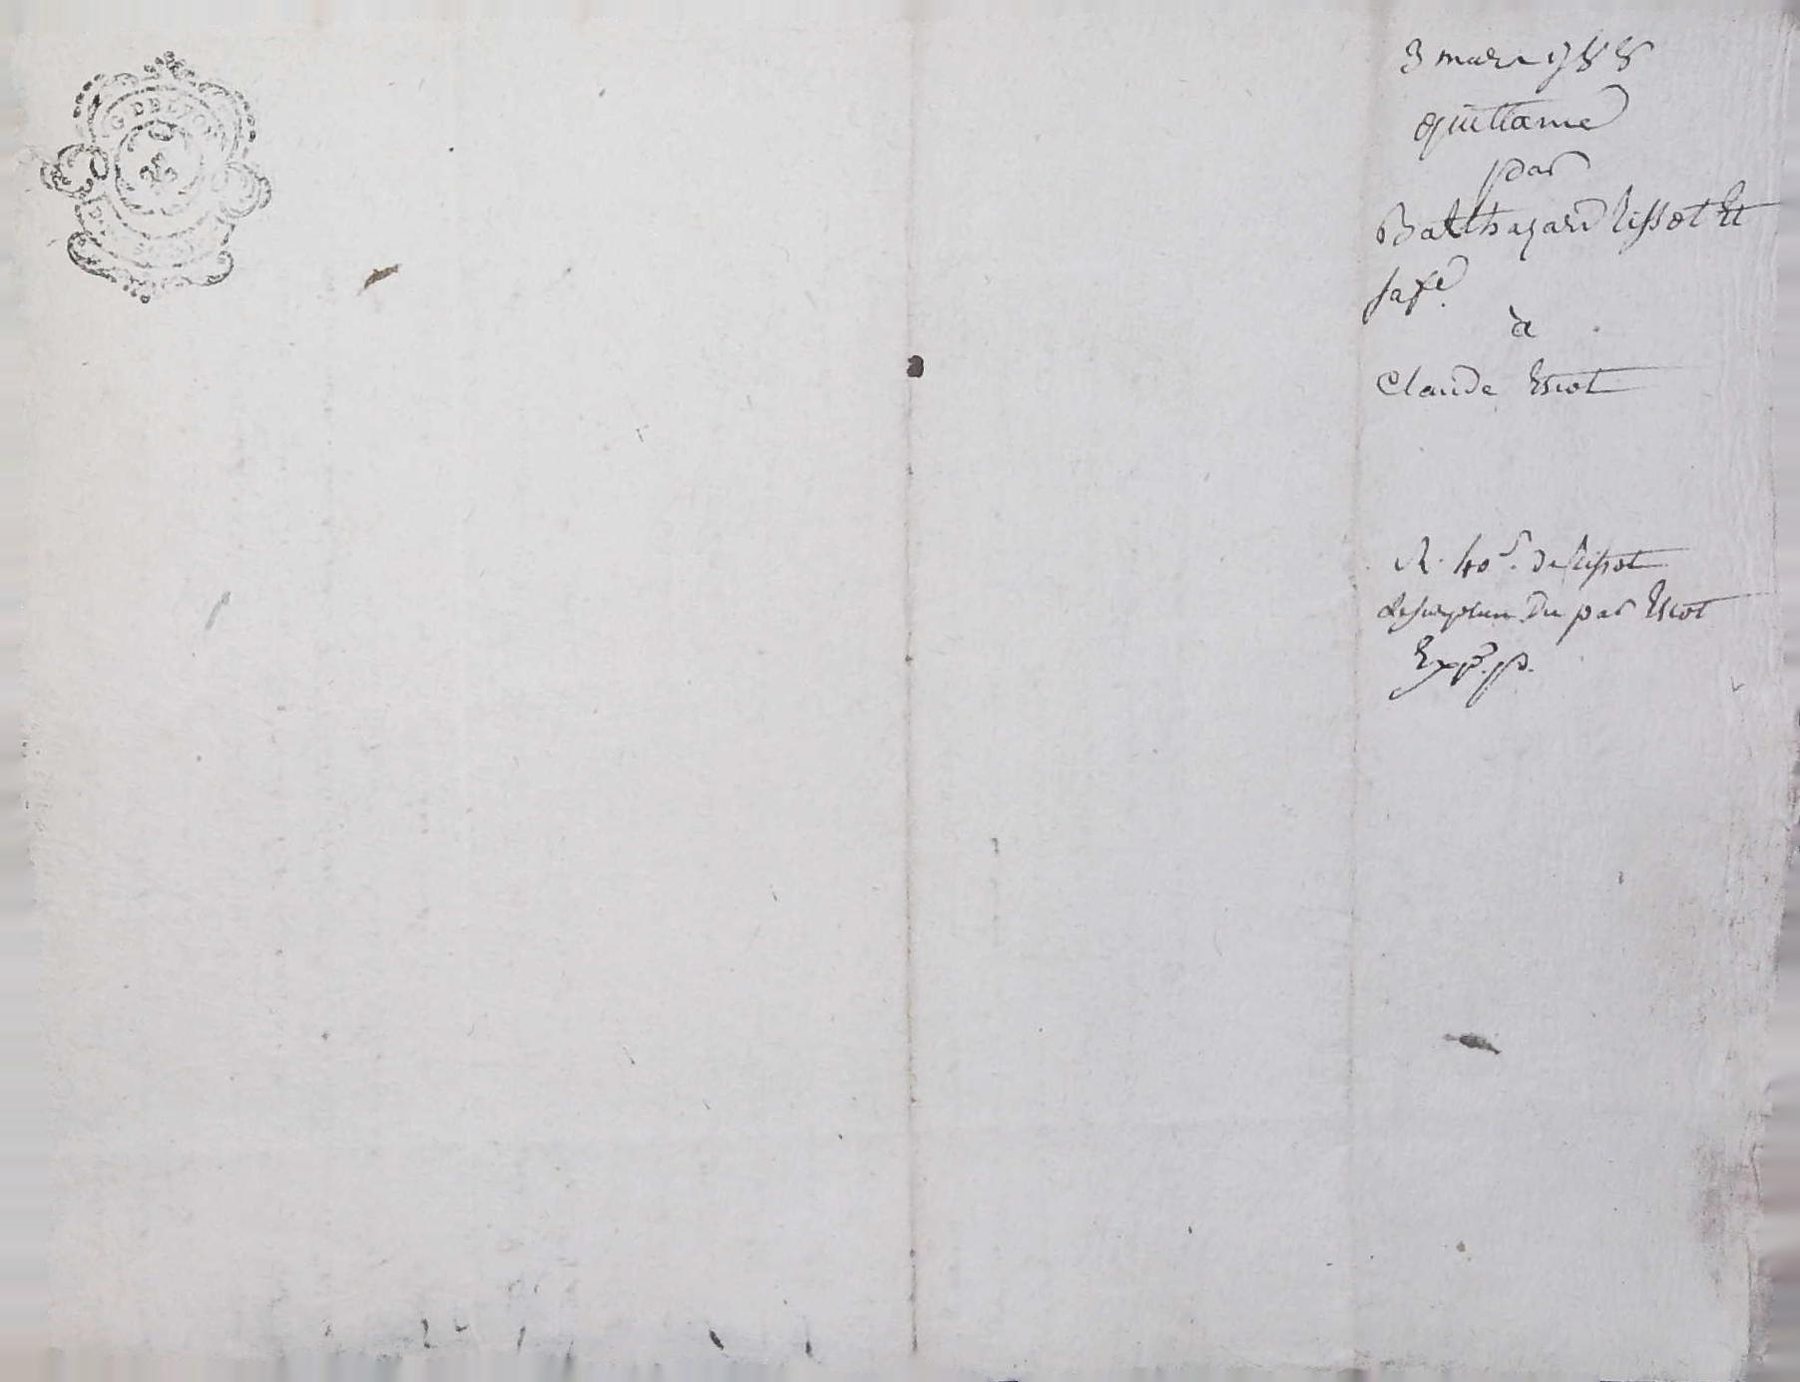 G DE LYON
3 mars 1788
quittance
par
Balthazard Tissot Et
sa fe.
à
Claude Escot
R. 40 s. de Tissot
Le surplus du par Escot
Exp.